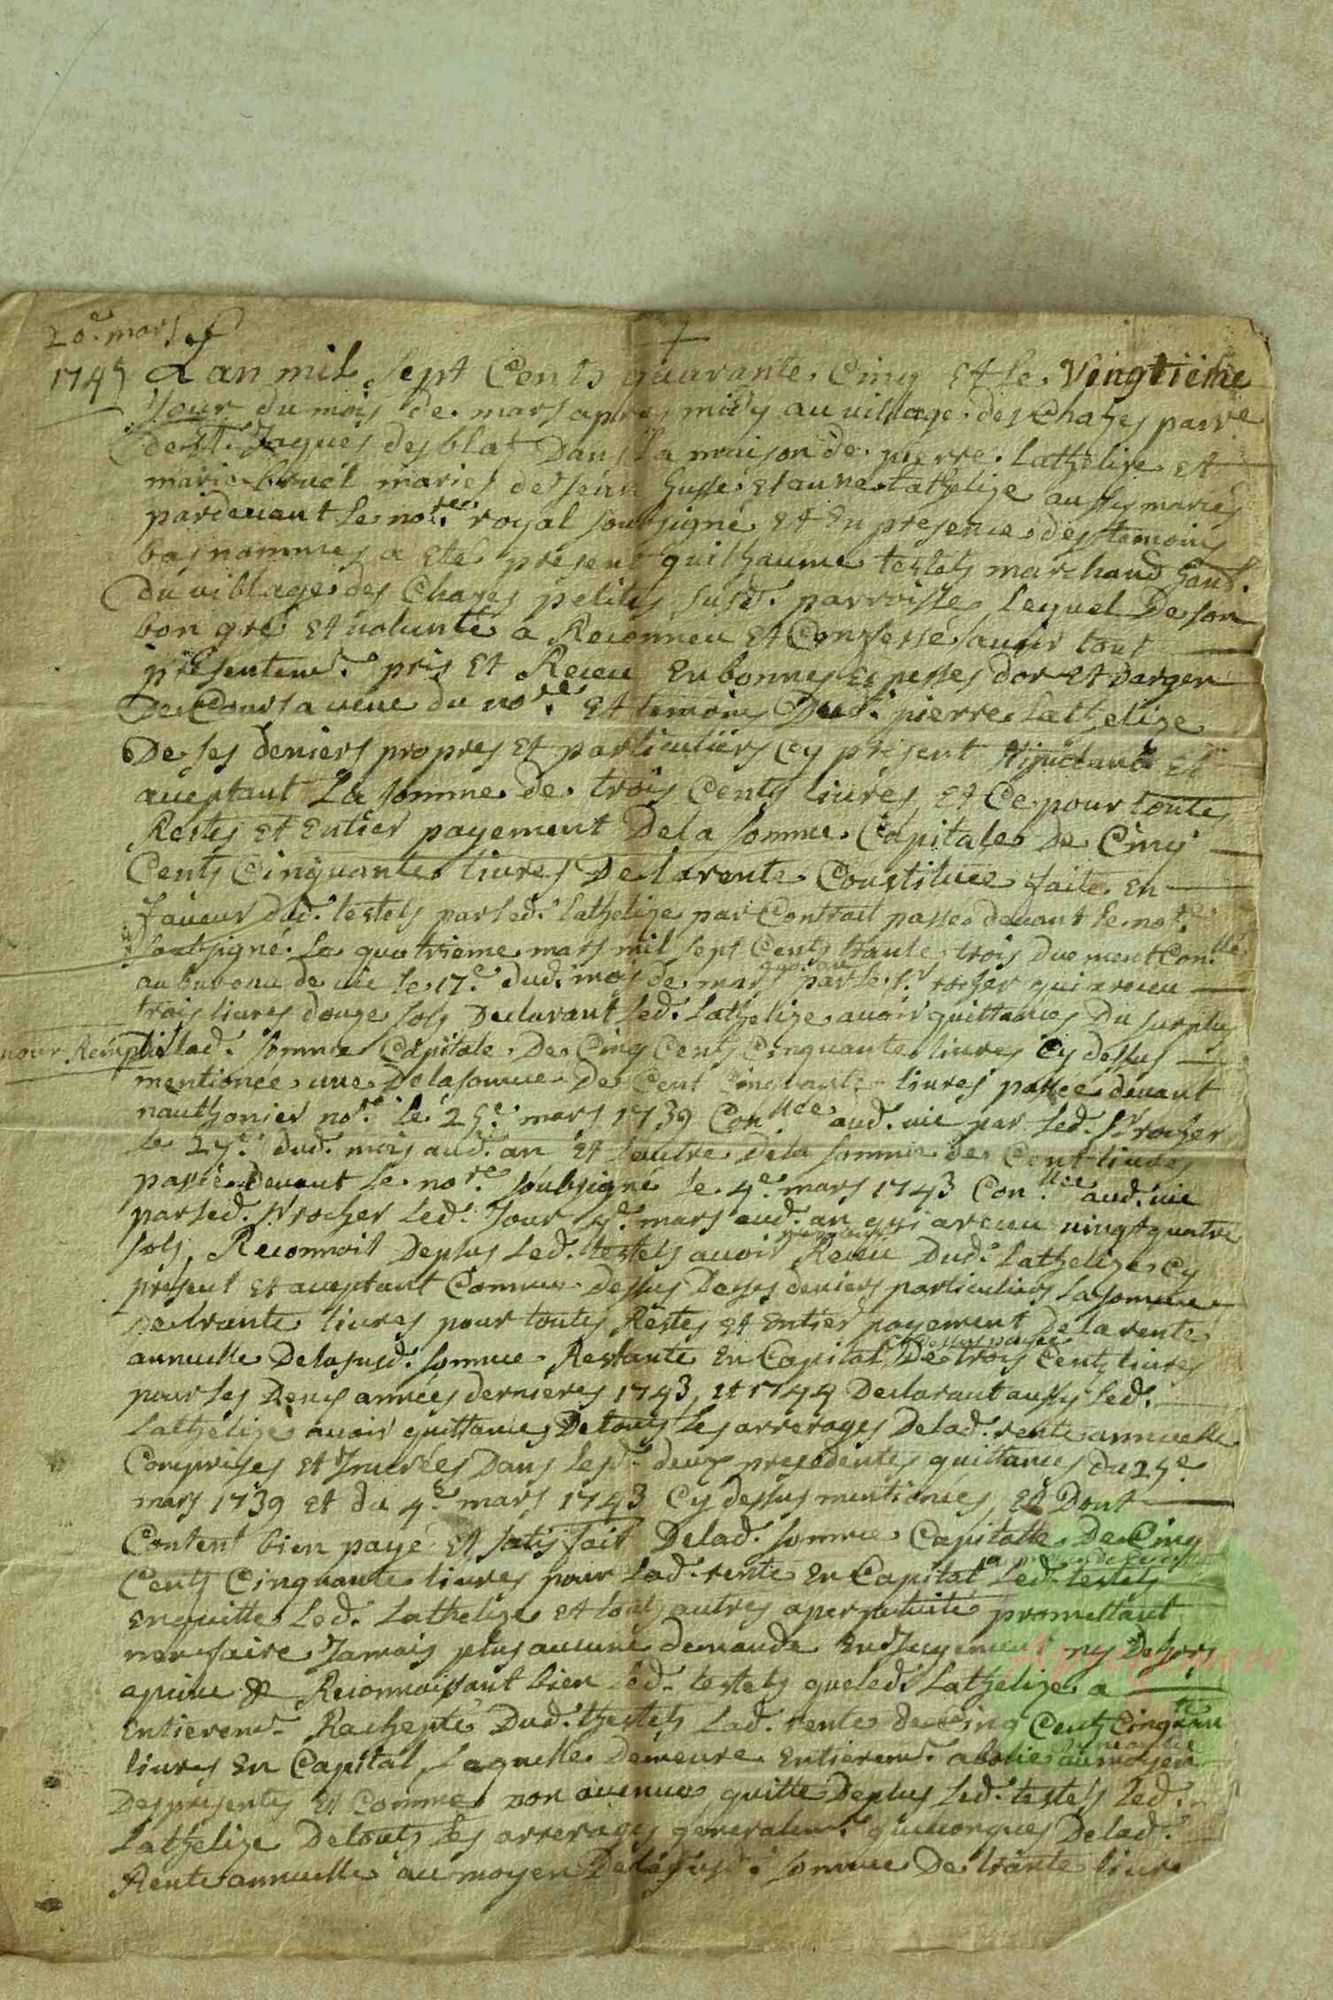 20e. mars
1745
Lan mil sept Cents quarante Cinq Et le vingtieme
Jour du mois de mars apres midy au village des Chazes parre
de St. Jaques desblat Dans la maison de pierre Lathelize Et
marie bruel maries de Jean Et anne Lathelize aussy maries
pardevant le nore. royal soubsigné Et En presence des temoins
bas nommes a Eté present guilhaume testels marchand hant.
Du village des Chazes petites susd. parroisse Lequel De son
bon gré Et volunté a Reconneu Et Confessé savoir tout
presentemt. pris Et Receu En bonnes Espesses dor Et dargen
De Cours a veue du nore. Et temoins Dud. pierre Lathelize
De ses deniers propres Et particuliers Cy present Et
aceptant La somme de trois Cents livres Et Ce pour toute
Restes Et Entier payement De la somme Capitale De Cinq
Cents Cinquante livres De la rente Constituee faite En
faveur Dud. testels par led. Lathelize par Contrait passé devant le nore.
soubsigné Le quatrieme mars mil sept Cents trante trois Duement Conllé
au bureau de vic le 17e. dud. mois de mars par le sr. rocher qui a receu
trois livres douze sols Declarant led. Lathelize avoir quittances Du surplus
De lad. somme Capitale De Cinq Cents Cinquante livres Cy dessus
mentionée une De la somme De Cent Cinquante livres passée devant
nauthonier nore. le 25e. mars 1739 Conllée aud. vic par led. sr. rocher
le 27e. dud. mois aud. an Et lautre De la somme de Cent livres
passée Devant le nore. soubsigné le 4e. mars 1743 Conllée aud. vic
par led. sr. rocher led. Jour 4e. mars aud. an qui a receu vingt quatre
sols, Reconnoit De plus led. testels avoir Receu Dud. Lathelize Cy
present Et aceptant Comme Dessus De ses deniers particuliers La somme
De trante livres pour toutes Restes Et Entier payement De la rente
annuelle De la susd. somme Restante En Capital De trois Cents livres
pour les Deux années dernieres 1743, Et 1744 Declarant aussy led.
Lathelize avoir quittance De tous les arrerages De lad. rente annuelle
Comprises Et Incerées Dans lesd. deux presedentes quittances du 25e.
mars 1739 Et du 4e. mars 1743 Cy dessus mentionés, Et Dont
Content bien payé Et satisfait De lad. somme Capitalle De Cinq
Cents Cinquante livres pour lad. rente En Capital Led. testels
En quitte Led. Lathelize Et tous autres a perpetuité promettant
nen faire Jamais plus aucune demande En Jugement ny Dehors
a peine & Reconnoissant bien led. testels que led. Lathelize a
Entieremt. Rachepté Dud. testels Lad. rente de Cinq Cents Cinquante
livres En Capital, Laquelle Demeure Entieremt. abolie au moyen
Des presentes Et Comme non avenue quitte De plus Led. testels led.
Lathelize De touts les arrerages generalemt. quelconques De lad.
Rente annuelle au moyen De la susd. somme De trante livre